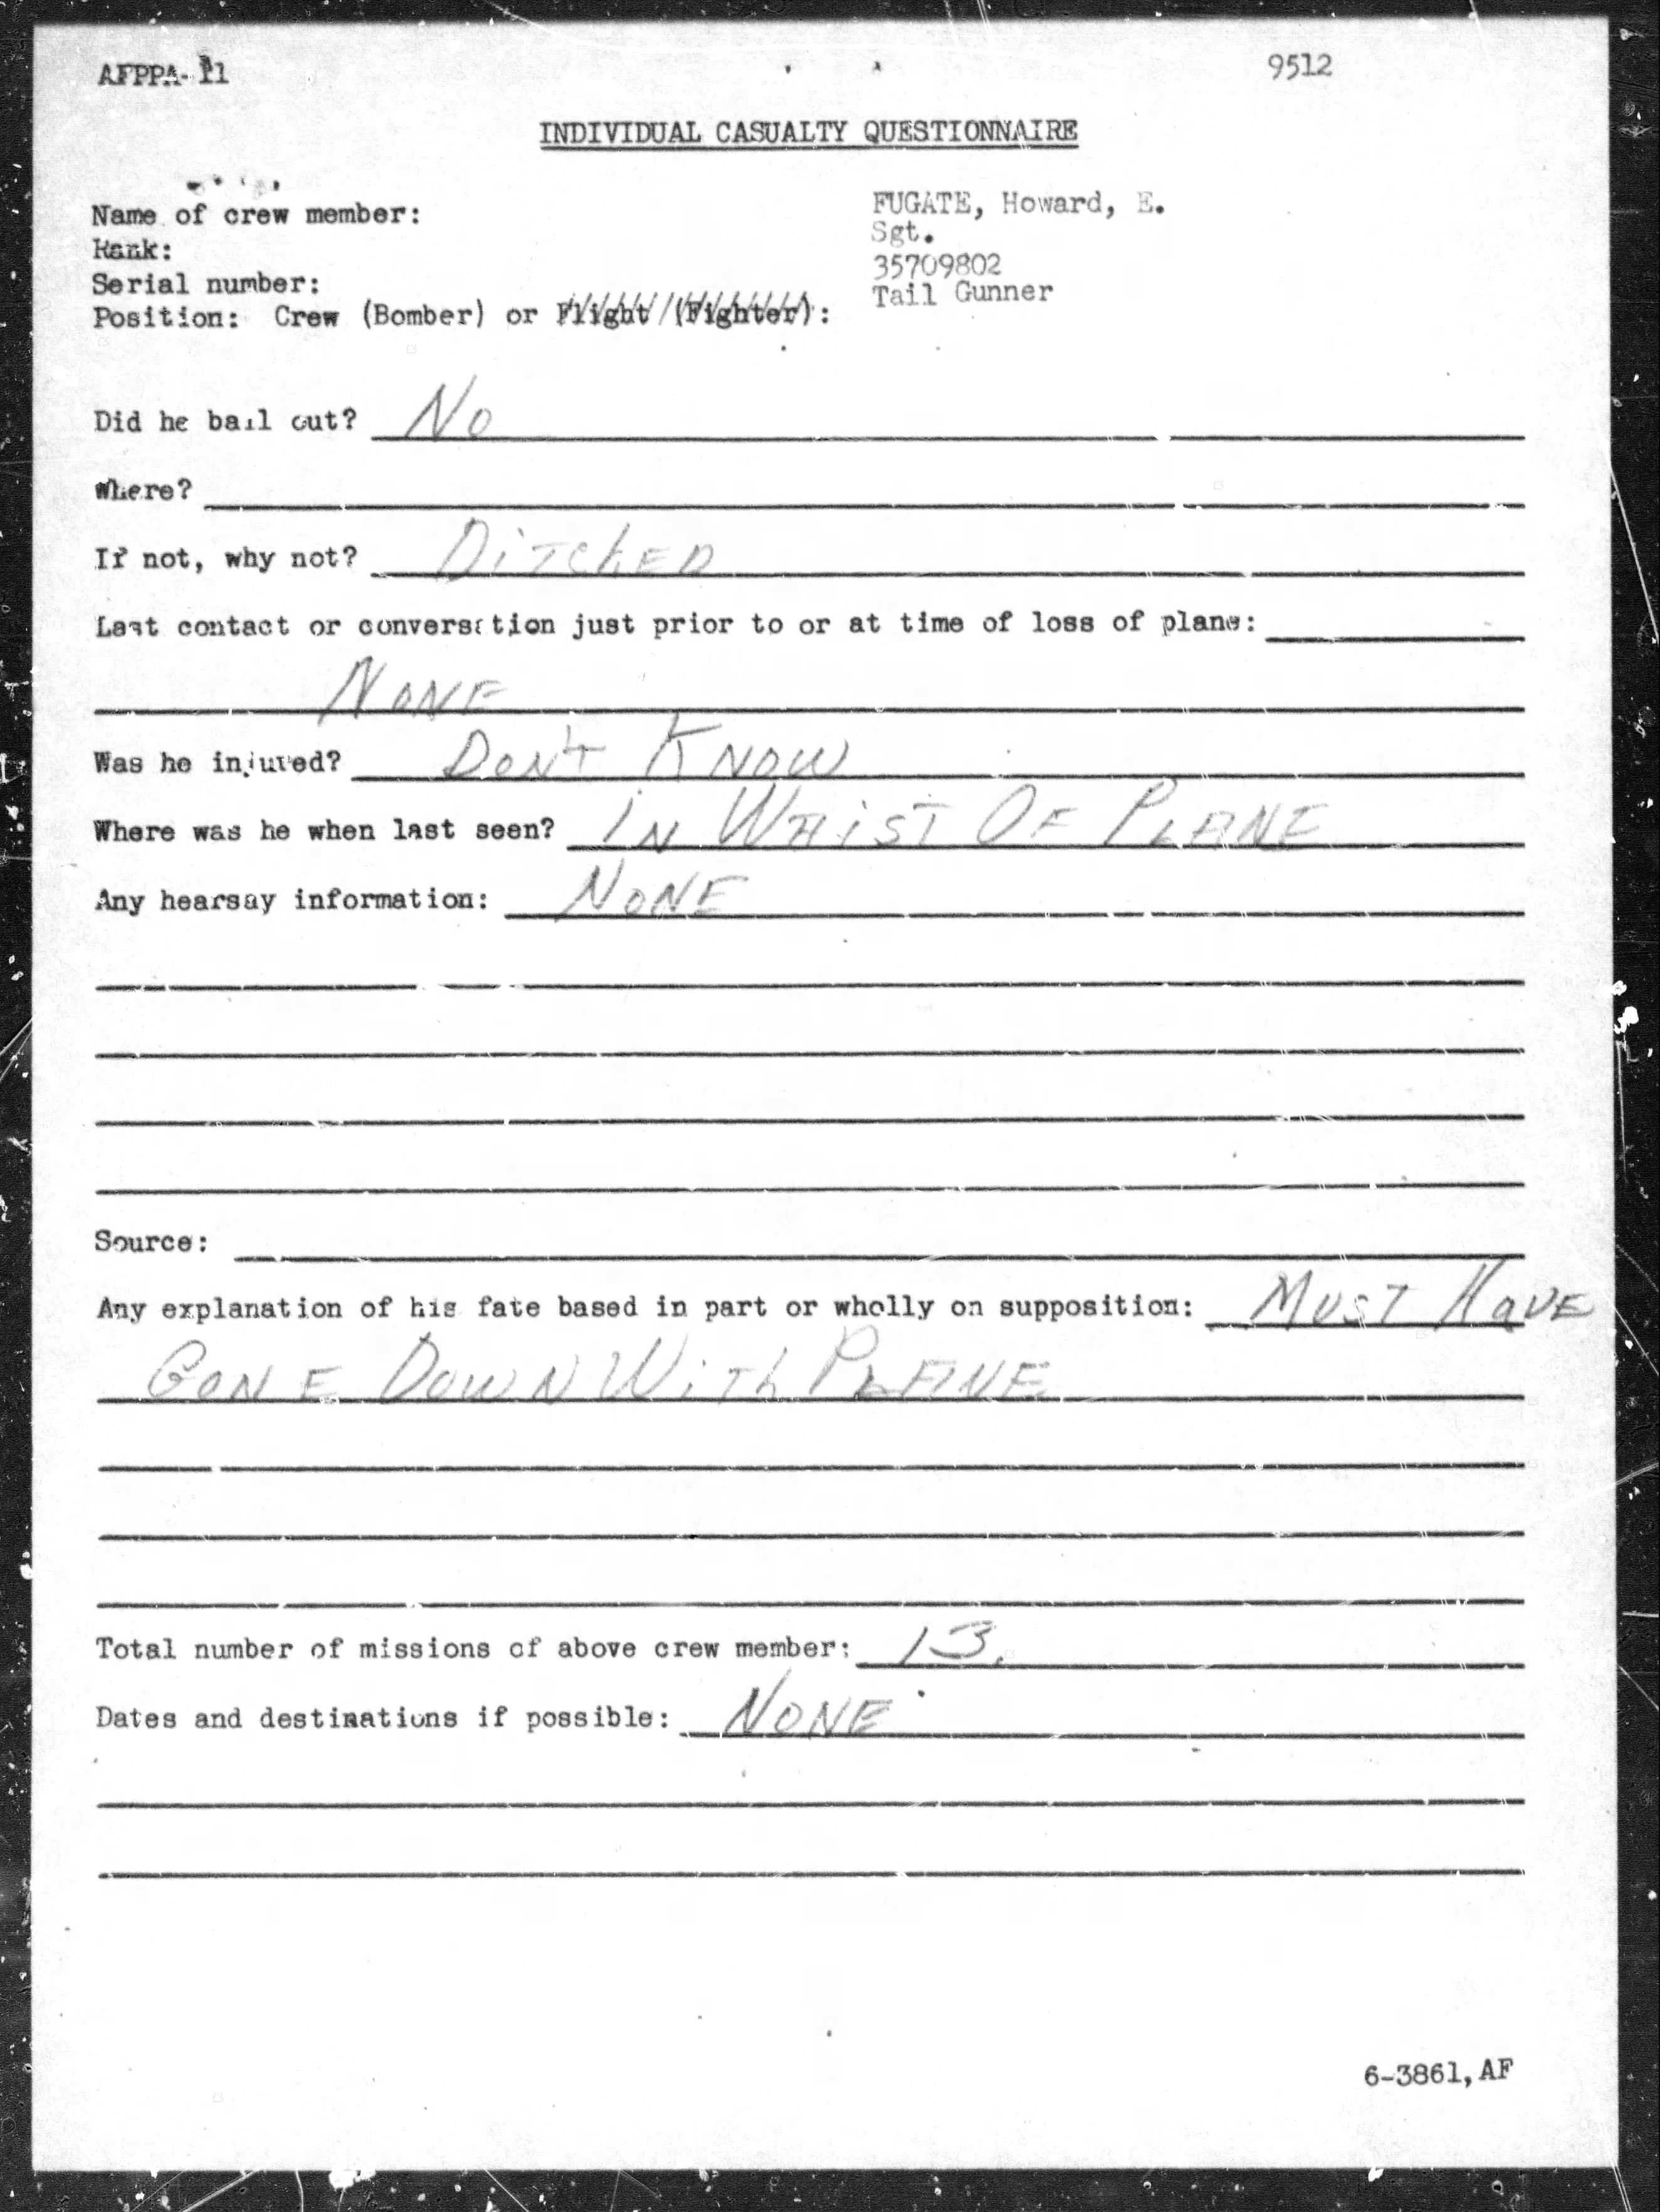 AFPPA-11
9512
INDIVIDUAL CASUALTY QUESTIONNAIRE
Name of crew member: FUGATE, Howard, E.
Rank: Sgt.
Serial number: 35709802
Position: Crew (Bomber) or Flight (Fighter): Tail Gunner
Did he bail out? No
Where?
If not, why not? DiTChED
Last contact or conversation just prior to or at time of loss of plane:
NONE
Was he injured? DON'T KNOW
Where was he when last seen? IN WAiST OF PLANE
Any hearsay information: NONE
Source:
Any explanation of his fate based in part or wholly on supposition: MUST HaVE
GONE DOWN WiTh PLANE
Total number of missions of above crew member: 13.
Dates and destinations if possible: NONE
6-3861, AF